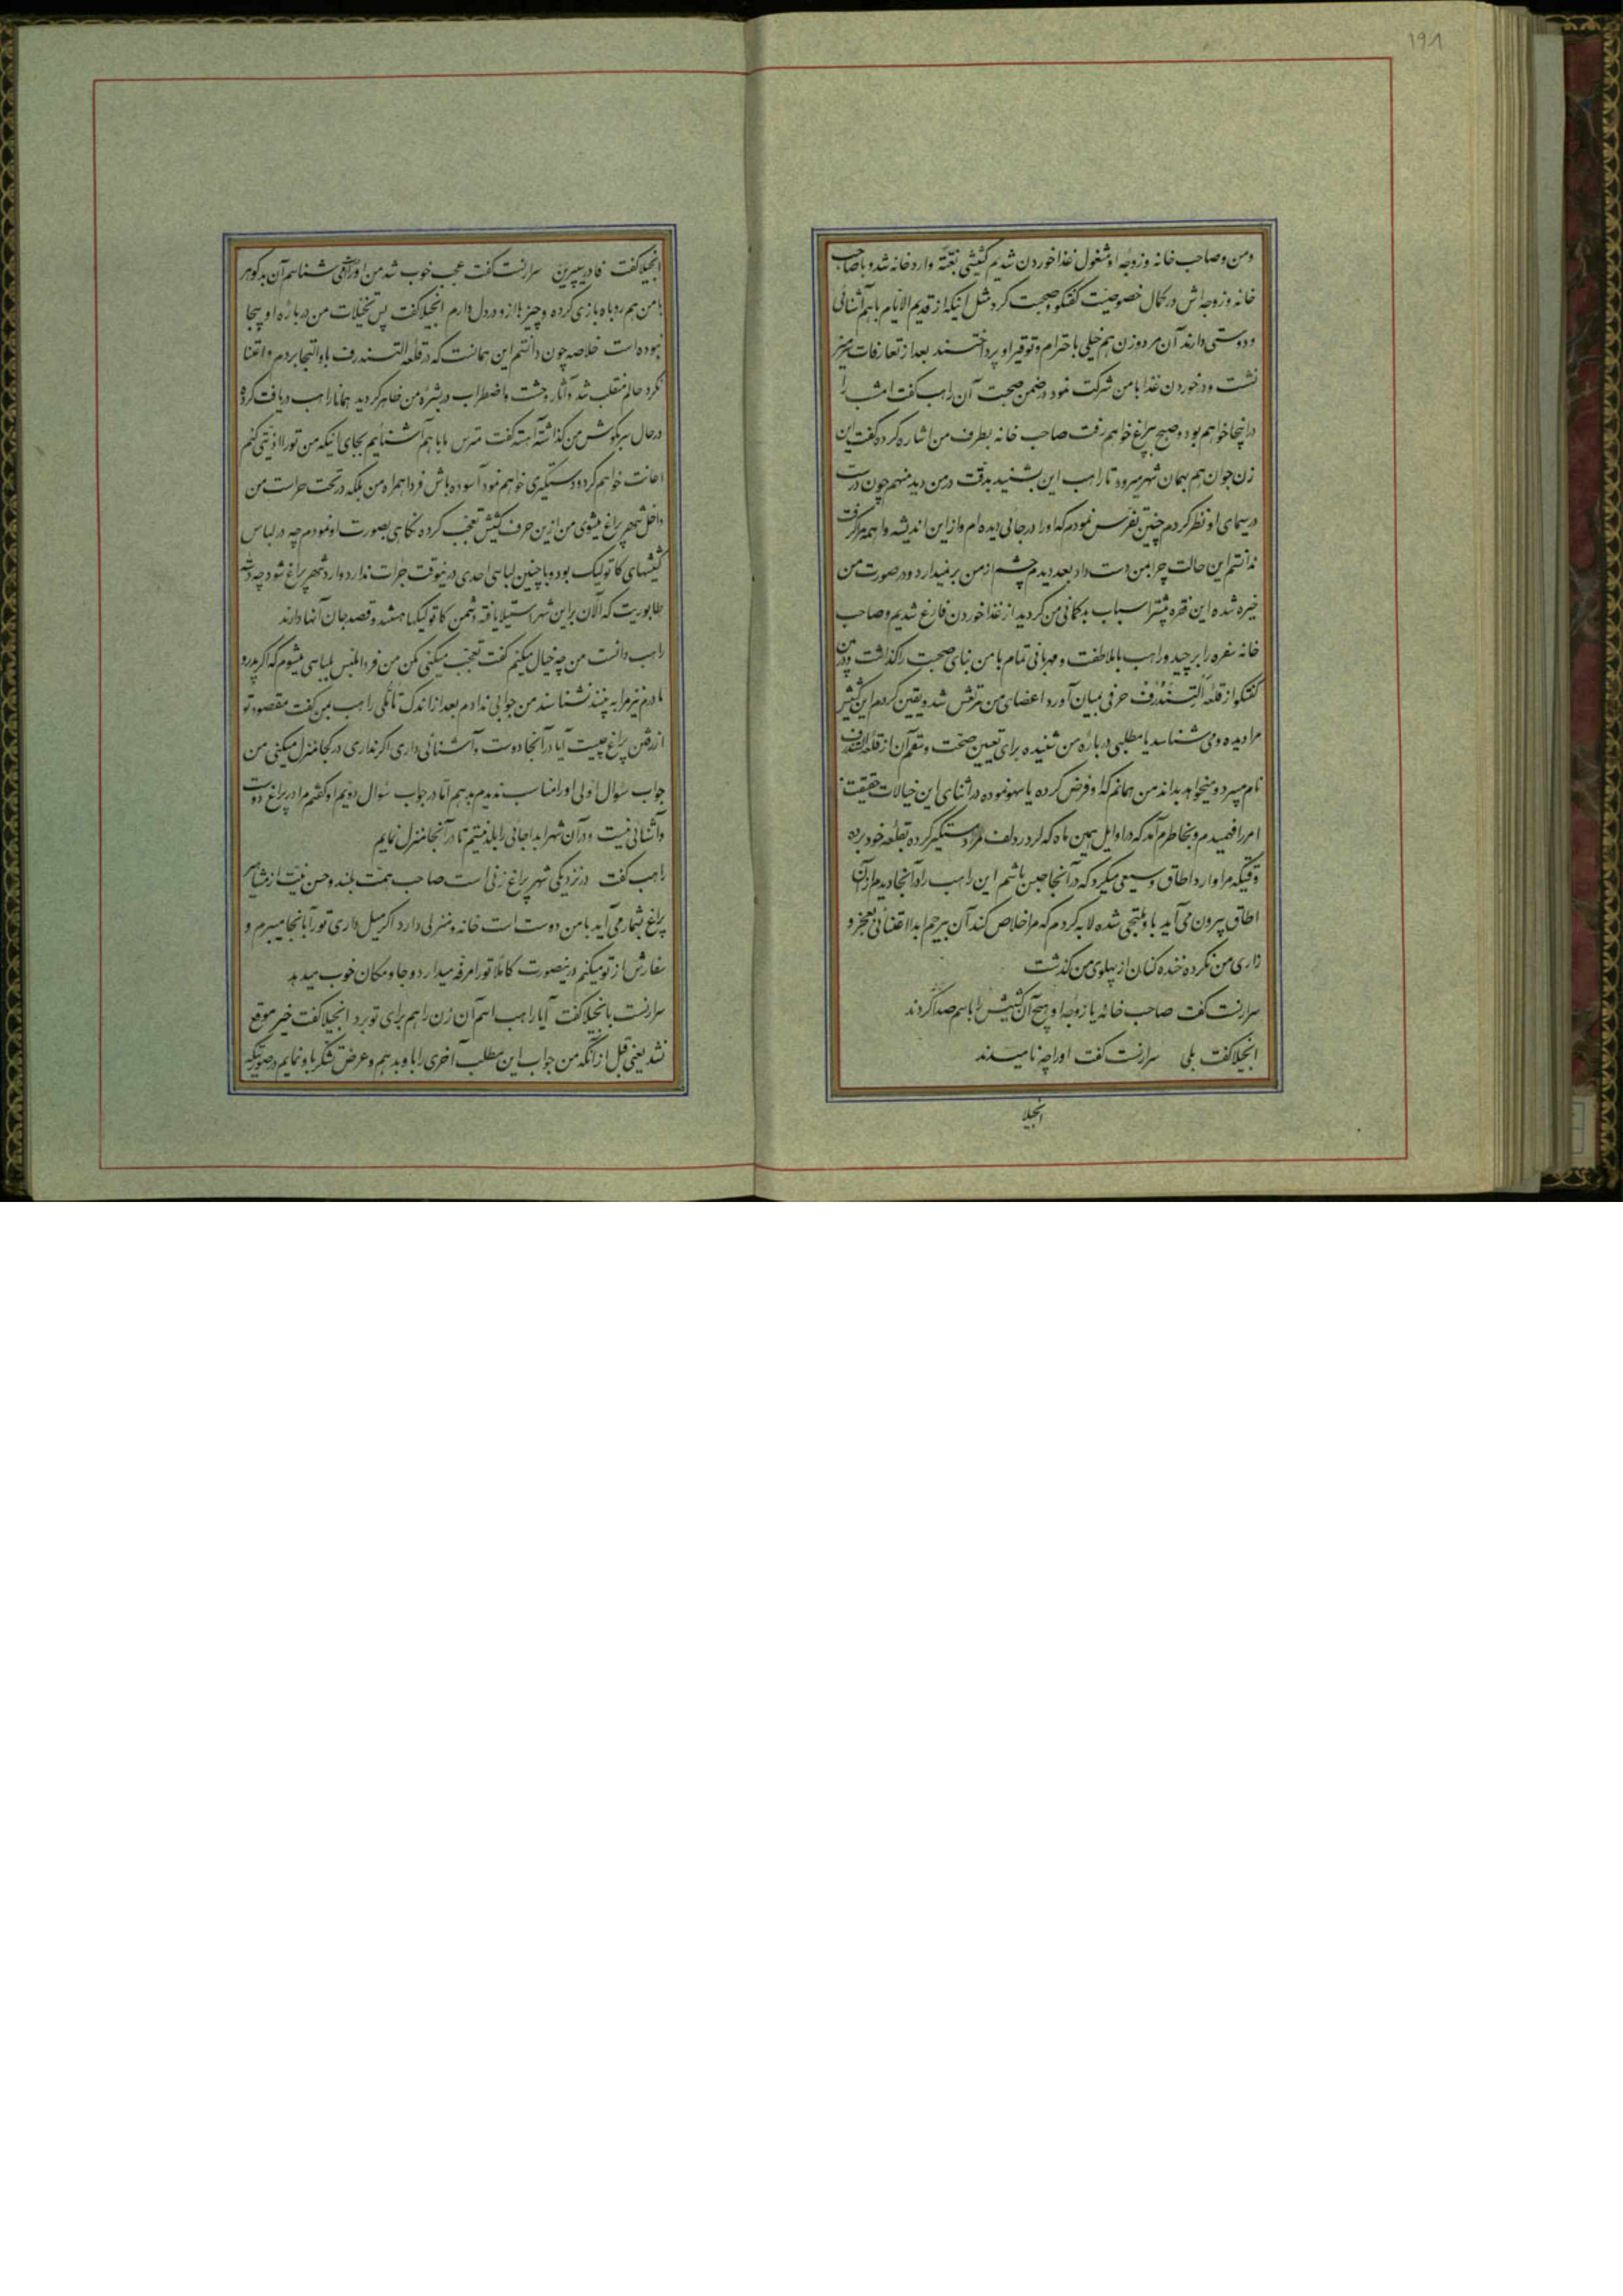 ۱۹۸
ومن وصاحب خانه وزوجه او مشغول غذا خوردن شدیم کشیشی بغتة وارد خانه شد و با صاحب
خانه وزوجه اش در کمال خصوصیت گفتگو وصحبت کرد مثل اینکه از قدیم الایام با هم آشنائی
ودوستی دارند آن مرد وزن هم خیلی با احترام وتوقیر او پرداختند بعد از تعارفات میز
نشست ودر خوردن غذا با من شرکت نمود در ضمن صحبت آن راهب گفت امشب را
در اینجا خواهم بود وصبح پراغ خواهم رفت صاحب خانه بطرف من اشاره کرده گفت این
زن جوان هم بهمان شهر میرود تا راهب این بشنید بدقت در من دید منهم چون درست
در سیمای او نظر کردم چنین تفرس نمودم که اورا در جائی دیده ام واز این اندیشه واهمه مرا گرفت
ندانستم این حالت چرا بمن دست داد بعد دیدم چشم از من بر نمیدارد ودر صورت من
خیره شده این فقره بیشتر اسباب بدگمانی من گردید از غذا خوردن فارغ شدیم وصاحب
خانه سفره را برچید وراهب با ملاطفت و مهربانی تمام با من بنای صحبت را گذاشت ودر بین
گفتگو از قلعه التسندرف حرفی بمیان آورد اعضای من مرتعش شد ویقین کردم این کشیش
مرا دیده ومی شناسد یا مطلبی در باره من شنیده برای تعیین صحت وسقم آن از قلعه التسندرف
نام میبرد و میخواهد بداند من همانم که او فرض کرده یا سهو نموده در اثنای این خیالات حقیقت
امر را فهمیدم وبخاطرم آمد که در اوایل همین ماه که لرد ردلف مرا دستگیر کرده بقلعه خود برده
وقتیکه مرا وارد اطاق وسیعی میکرد که در آنجا حبس باشم این راهب را در آنجا دیدم از آن
اطاق بیرون می آید باو ملتجی شده لابه کردم که مرا خلاص کند آن بیرحم ابدا اعتنائی بعجز و
زاری من نکرده خنده کنان از پهلوی من گذشت
سرارنست گفت صاحب خانه یا زوجه او هیچ آن کشیش را باسم صدا کردند
انجیلا گفت بلی سرارنست گفت اورا چه نامیدند
انجیلا
انجیلا گفت فادر سیپرین سرارنست گفت عجب خوب شد من اورا می شناسم آن بدگوهر
با من هم روباه بازی کرده وچیزها از او در دل دارم انجیلا گفت پس تخیلات من در باره او بیجا
نبوده است خلاصه چون دانستم این همانست که در قلعه التسندرف باو التجا بردم واعتنا
نکرد حالم منقلب شد وآثار وحشت واضطراب در بشره من ظاهر گردید همانا راهب دریافت کرده
در حال سر بگوش من گذاشته آهسته گفت مترس ما با هم آشنائیم بجای اینکه من تورا اذیتی کنم
اعانت خواهم کرد ودستگیری خواهم نمود آسوده باش فردا همراه من بلکه در تحت حراست من
داخل شهر پراغ میشوی من از این حرف کشیش تعجب کرده نگاهی بصورت او نمودم چه در لباس
کشیشهای کاتولیک بود وبا چنین لباسی احدی در نیوقت جرات ندارد وارد شهر پراغ شود چه دسته
طابوریت که الان براین شهر استیلا یافته دشمن کاتولیکها هستند وقصد جان آنها دارند
راهب دانست من چه خیال میکنم گفت تعجب میکنی مکن من فردا ملبس بلباسی میشوم که اگر پدر و
مادرم نیز مرا به بینند نشناسند من جوابی ندادم بعد از اندک تأملی راهب بمن گفت مقصود تو
از رفتن پراغ چیست آیا در آنجا دوست وآشنائی داری اگر نداری در کجا منزل میکنی من
جواب سؤال اولی اورا مناسب ندیدم بدهم اما در جواب سؤال دویم او گفتم مرا در پراغ دوست
وآشنائی نیست ودر آن شهر ابدا جائی را بلد نیستم تا در آنجا منزل نمایم
راهب گفت در نزدیکی شهر پراغ زنی است صاحب همت بلند وحسن نیت از مشاهیر
پراغ بشمار می آید با من دوست است خانه ومنزلی دارد اگر میل داری تورا بآنجا میبرم و
سفارش از تو میکنم در نیصورت کاملا تورا مرفه میدارد وجا ومکان خوب میدهد
سرارنست بانجیلا گفت آیا راهب اسم آن زن را هم برای تو برد انجیلا گفت خیر موقع
نشد یعنی قبل از آنکه من جواب این مطلب آخری را باو بدهم وعرض تشکر باو نمایم در صورتیکه